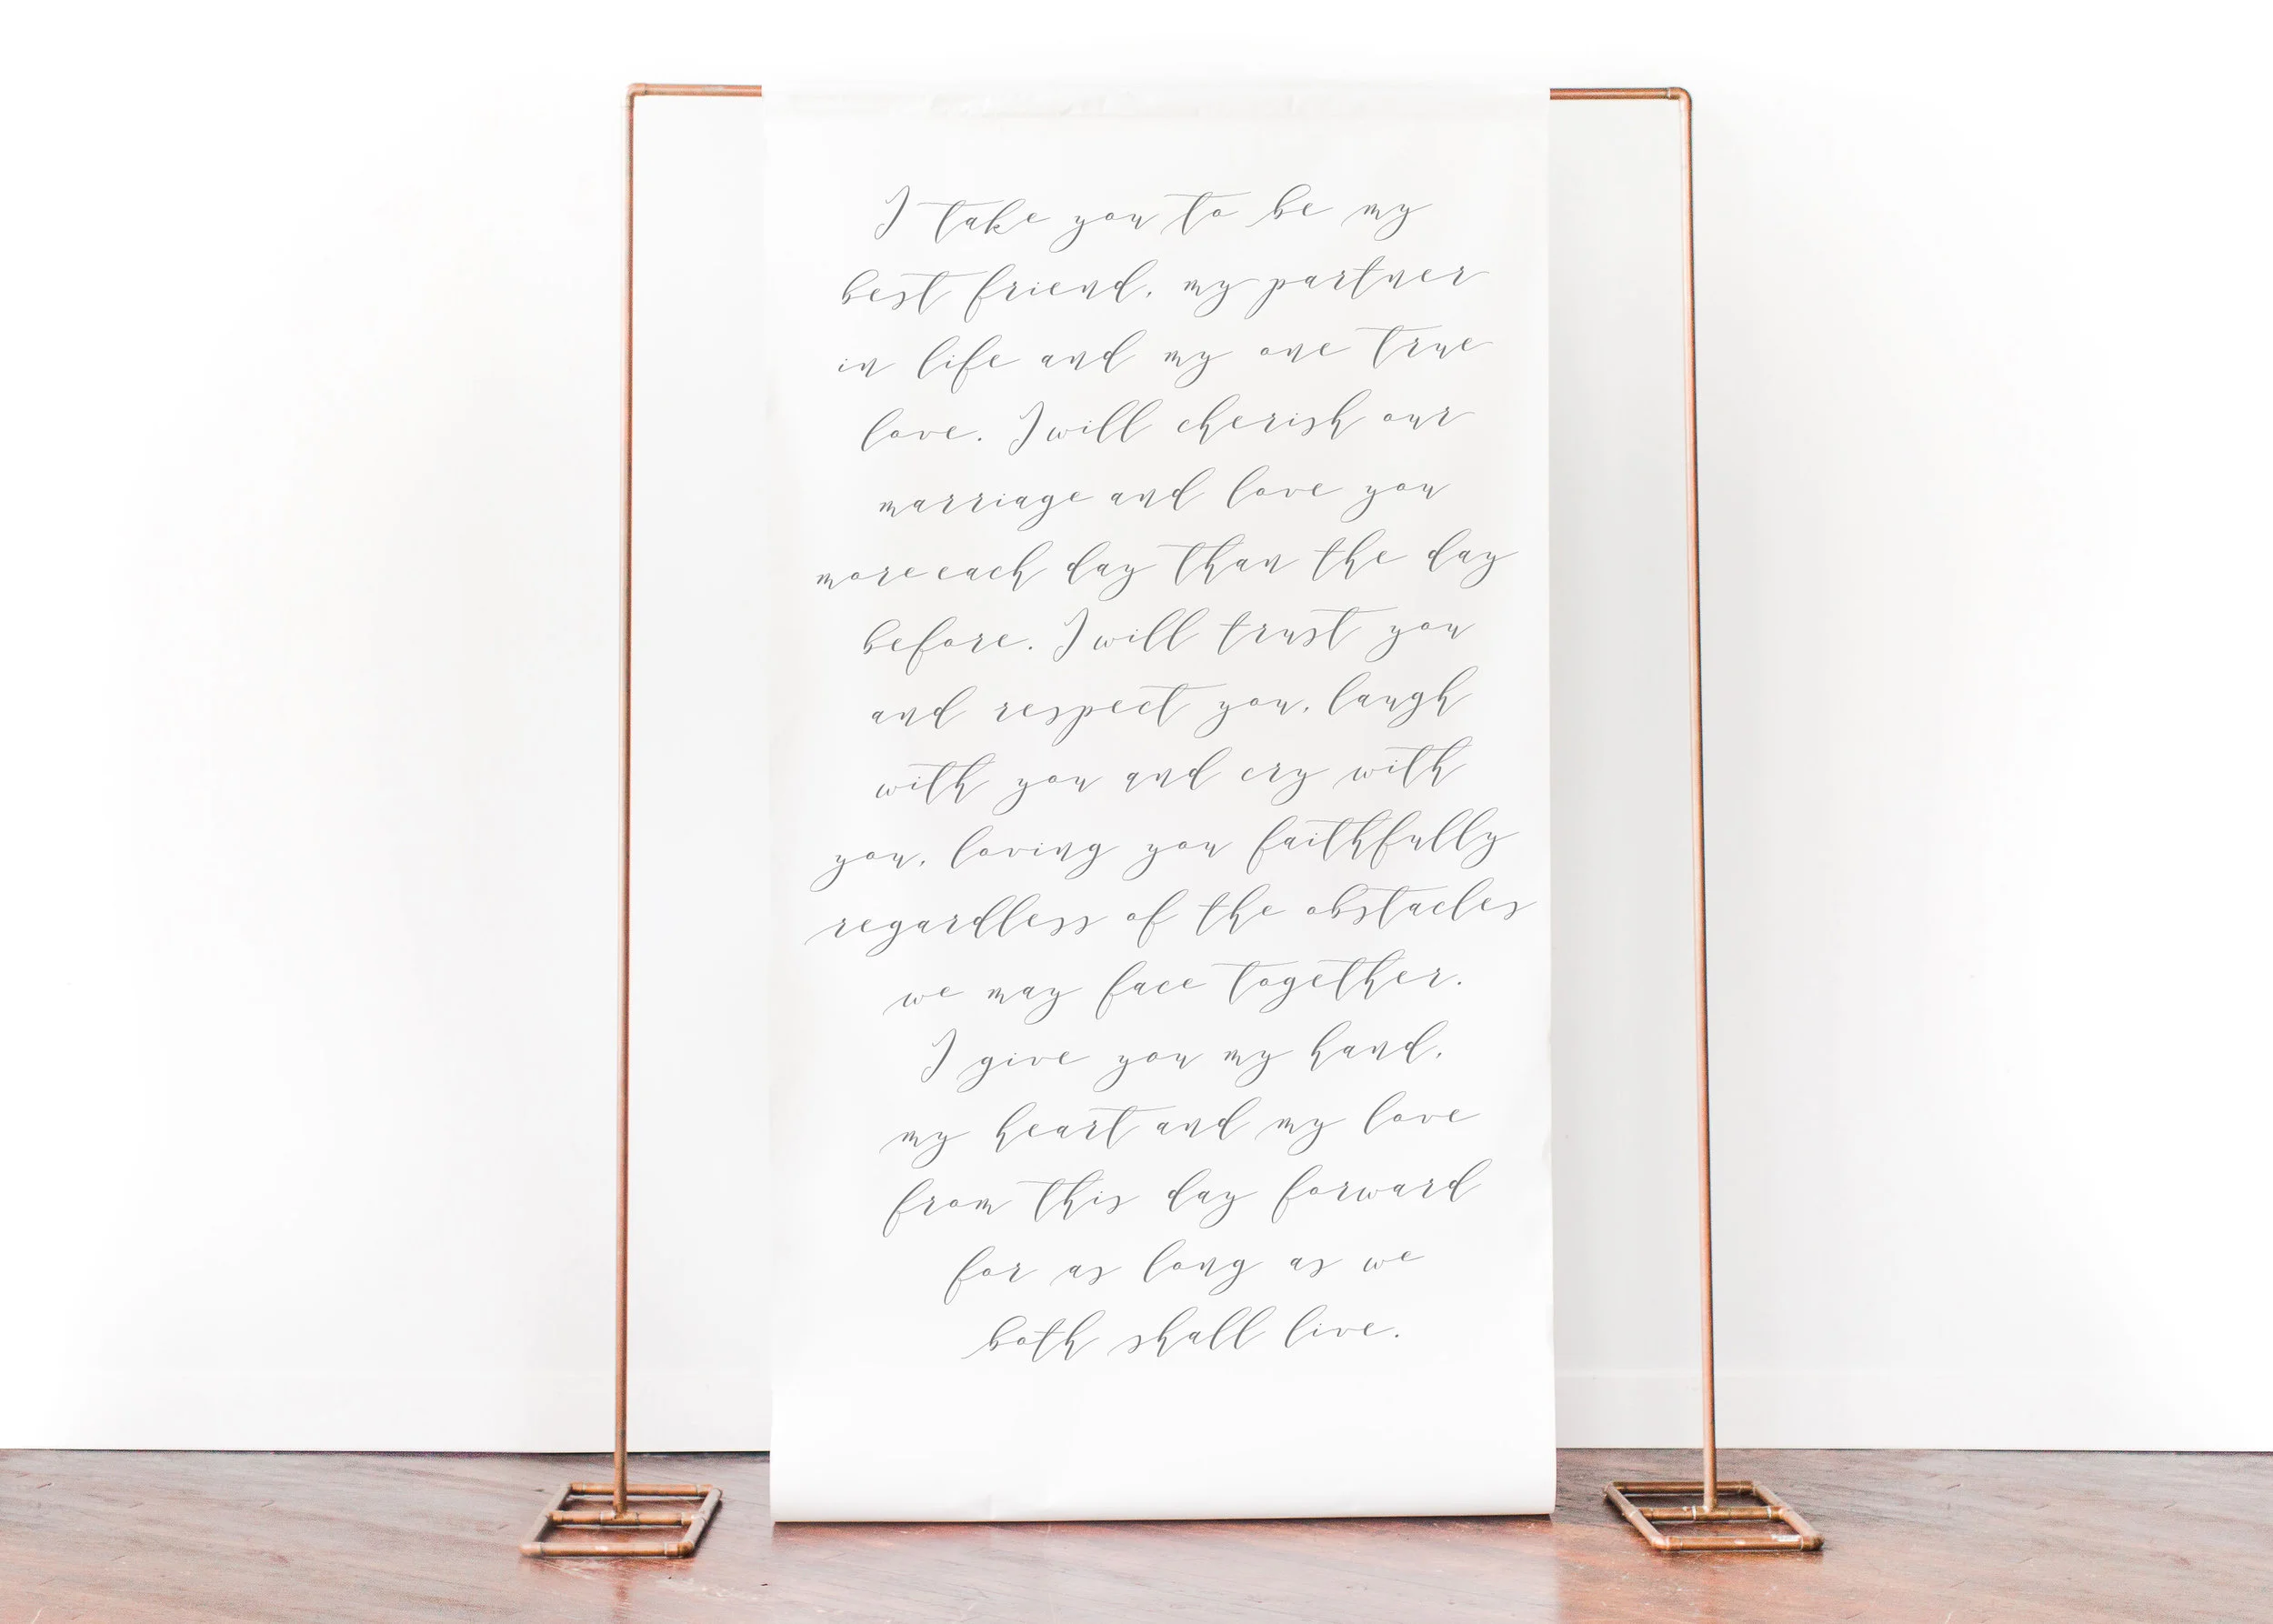 I take you to be my
best friend, my partner
in life and my one true
love. I will cherish our
marriage and love you
more each day than the day
before. I will trust you
and respect you, laugh
with you and cry with
you, loving you faithfully
regardless of the obstacles
we may face together.
I give you my hand,
my heart and my love
from this day forward
for as long as we
both shall live.